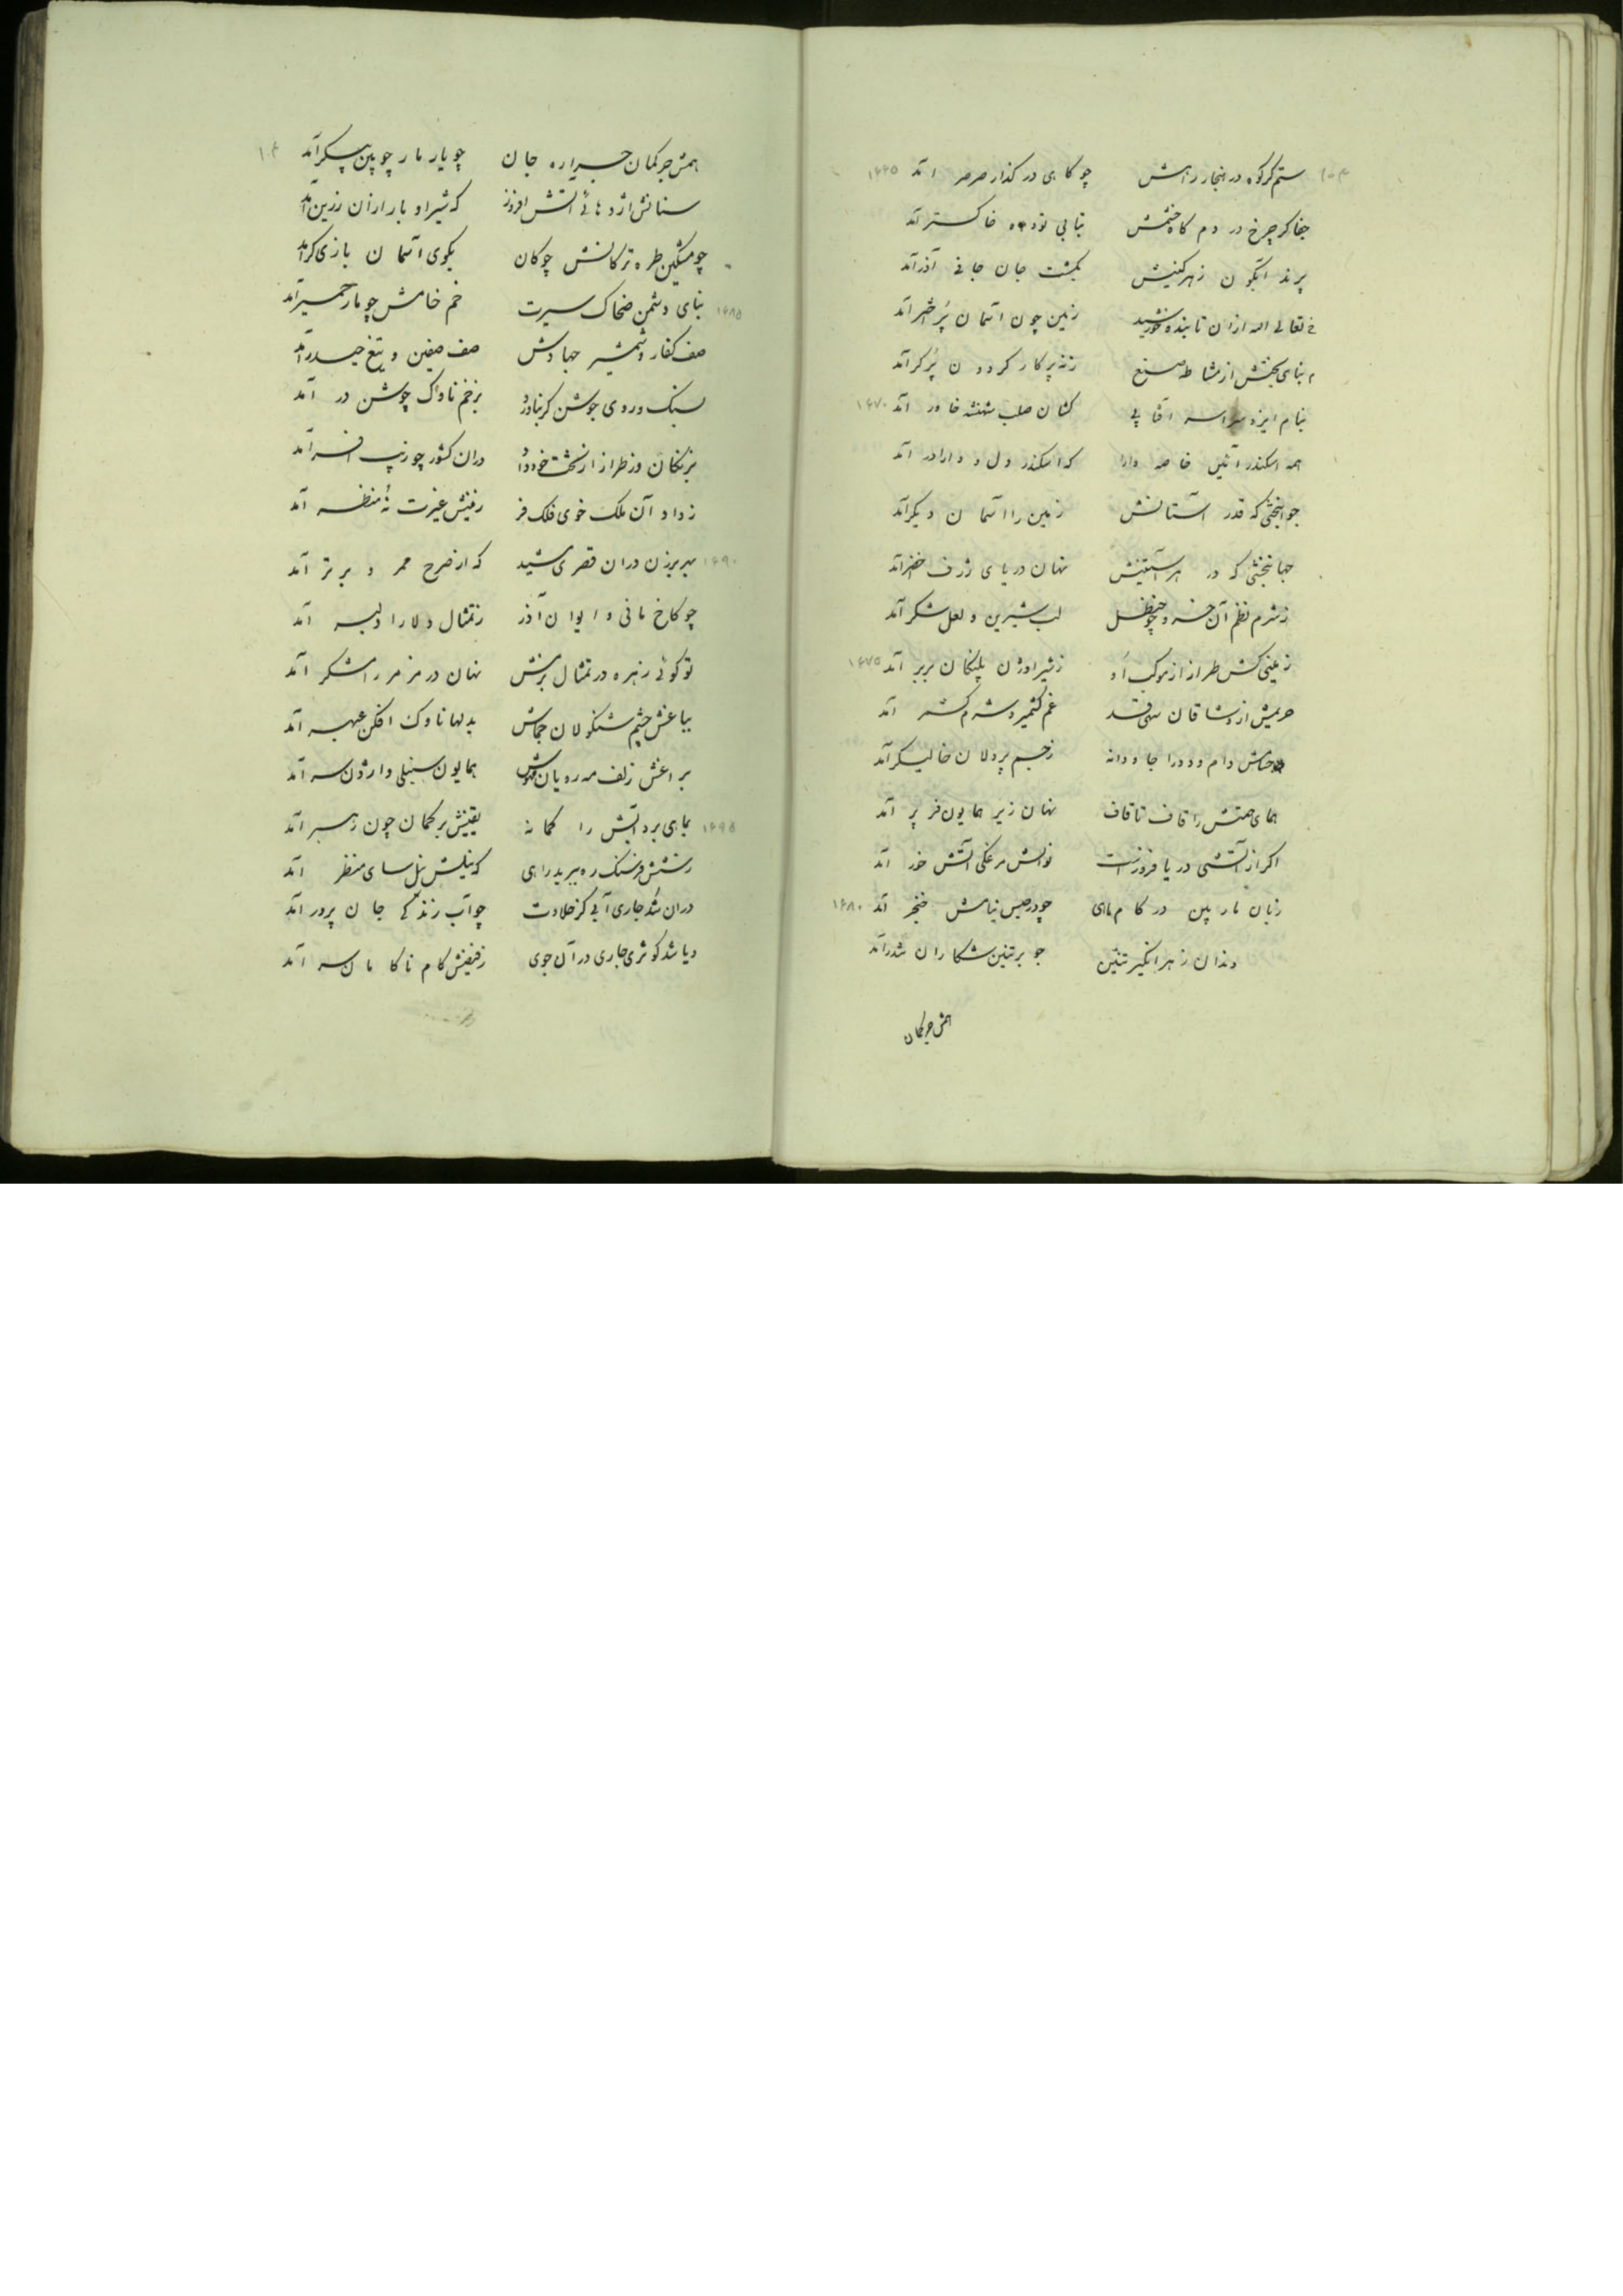 ستم گر کوه در هنجار راهش چو کاهی در کذار صرصر آمد ۱۶۶۵
جفا کر چرخ در دم کاه خشمش بتابی توده خاکستر آمد
پرند آبگون زهر کینش بکشت جان جانی آذر آمد
تعالی الله ازان تابنده خورشید زمین چون آسمان پر اختر آمد
بنای بختش از مشاطه صنع زنه پرکار کردون پرکر آمد
بنام ایزد آفتابی کشان صلب شهنشه خاور آمد ۱۶۷۰
همه اسکندر آئین خاصه دارا که اسکندر دل و دارا در آمد
جوانبختی که قدر آستانش زمین را آسمان دیکر آمد
جهانبخشی که در هر آستینش نهان دریای ژرف اخضر آمد
ز شرم نظم آن خسرو چو حنظل لب شیرین و لعل شکر آمد
زمینی کش طراز از موکب او ز شیر اوژن پلنکان بربر آمد ۱۶۷۵
حریمش از وشاقان سهی قد غم کشمیر و شرم کشمر آمد
دام و دد را جاودانه ز جسم پردلان خالیکر آمد
همای همتش را قاف تا قاف نهان زیر همایون فر پر آمد
اکر از آتشی دریا فروزست نوالش مرغکی آتش خور آمد
زبان مار پین در کام ماهی چو در حبس نیامش خنجر آمد ۱۶۸۰
دندان زهر انکیز تنین چو بر تنین شکاران شدر آمد
همش چرکمان
همش چرکمان جراره جان چو یار مار چوپین پیکر آمد
سنانش اژدهائی آتش افروز که شیر اوبار ازان زرین آمد
چو مشکین طره ترکانش چوکان بکوی آسمان بازی کر آمد
بنای دشمن ضحاک سیرت خم خامش چو مار حمیر آمد ۱۶۸۵
صف کفار و شمشیر جهادش صف صفین و تیغ حیدر آمد
سبک در وی جوشن کر بناورد بزخم ناوک جوشن در آمد
بزنکان در طراز از تخت خود داد دران کشور چو زیب افسر آمد
ز داد آن ملک خوی فلک فر زمینش غیرت نه منظر آمد
بهر برزن دران قصری مشید که از صرح ممرد برتر آمد ۱۶۹۰
چو کاخ مانی و ایوان آذر ز تمثال دلارا دلبر آمد
تو کوئی زهره در تمثال بزمش نهان در مزمر رامشکر آمد
بباغش چشم شنکولان جماش بدلها ناوک افکن عبهر آمد
براغش زلف مه رویان مهوش همایون سنبلی واژون سر آمد
بماهی برد آبش را کمانه یقینش بر کمان چون رهبر آمد ۱۶۹۵
ز شش فرسنک ره ببرید راهی که نیلش نیل سای منظر آمد
دران شد جاری آبی کز حلاوت چو آب زندکی جان پرور آمد
و یا شد کوثری جاری در آن جوی ز فیضش کام ناکامان سر آمد